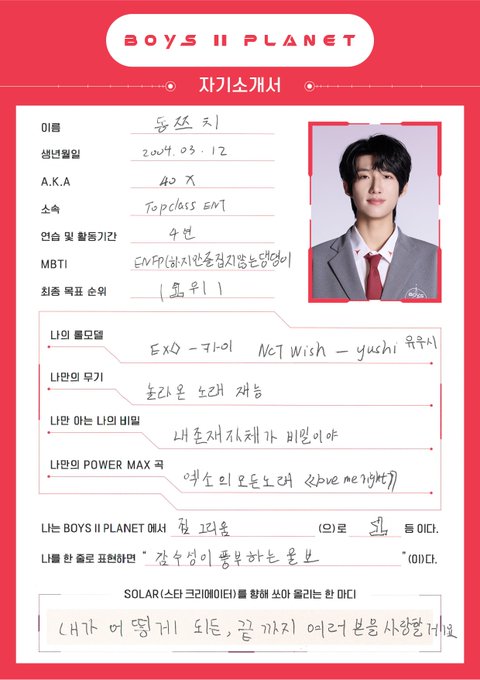 BOYS II PLANET
자기소개서
이름 동쯔치
생년월일 2004.03.12
A.K.A 40 X
소속 Topclass ENT
연습 및 활동기간 4년
MBTI ENFP(하지만 줄 집지 않는 댕댕이
최종 목표 순위 1위 !
나의 롤모델 EXO - 카이 NCT Wish - yushi 유우시
나만의 무기 놀라운 노래 재능
나만 아는 나의 비밀 내 존재 자체가 비밀이야
나만의 POWER MAX 곡 엑소의 모든 노래 《love me right》
나는 BOYS II PLANET 에서 집 그리움 (으)로 1 등 이다.
나를 한 줄로 표현하면 " 감수성이 풍부하는 울보 " (이)다.
SOLAR(스타 크리에이터)를 향해 쏘아 올리는 한 마디
내가 어떻게 되든, 끝까지 여러분을 사랑할게요
BOYS